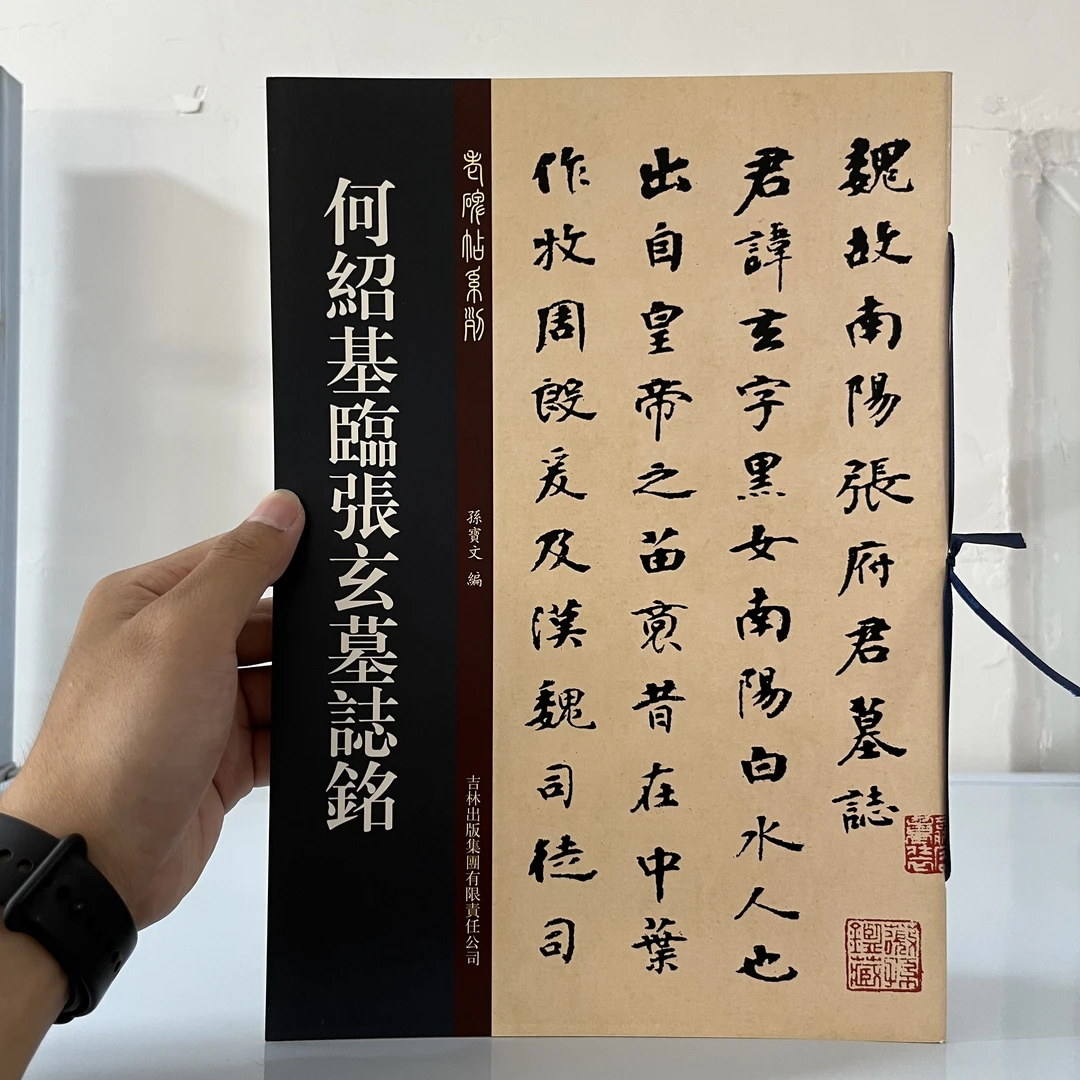 魏故南陽張府君墓誌
君諱玄字黑女南陽白水人也
出自皇帝之苗裔昔在中葉
作牧周殷爰及漢魏司徒司
老碑帖系列
孫寶文 編
吉林出版集團有限責任公司
何紹基臨張玄墓誌銘